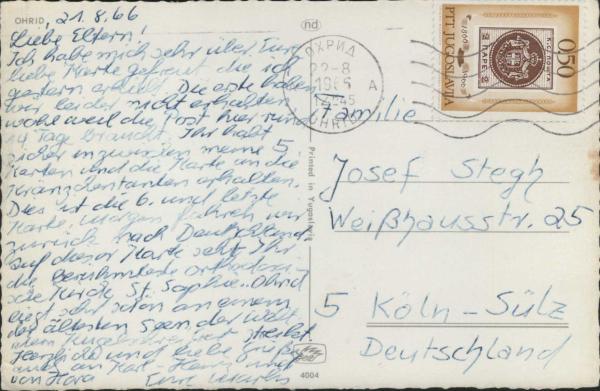 OHRID, 21.8.66
Liebe Eltern!
Ich habe mich sehr über Eure
liebe Karte gefreut die ich
gestern erhielt. Die erste haben
wir leider nicht erhalten
wohl weil die Post hier rund
14 Tag braucht. Ihr habt
sicher inzwischen meine 5
Karten und die Karte an die
Kränzchentanten erhalten.
Dies ist die 6. und letzte
Karte. Morgen fahren wir
zurück nach Deutschland.
Auf dieser Karte seht Ihr
die berühmteste orthodoxi-
sche Kirche St. Sophie. Ohrid
liegt sehr schön an einem
der ältesten Seen der Welt
und liebe Grüße
von
nd
ОХРИД
22-8
1966
A
OHRID
0,50
PTT JUGOSLAVIJA
1866 1966
К.С.ПОШТА
2 ПАРЕ 2
Printed in Yugoslavia
4004
Familie
Josef Stegh
Weißhausstr. 25
5 Köln-Sülz
Deutschland